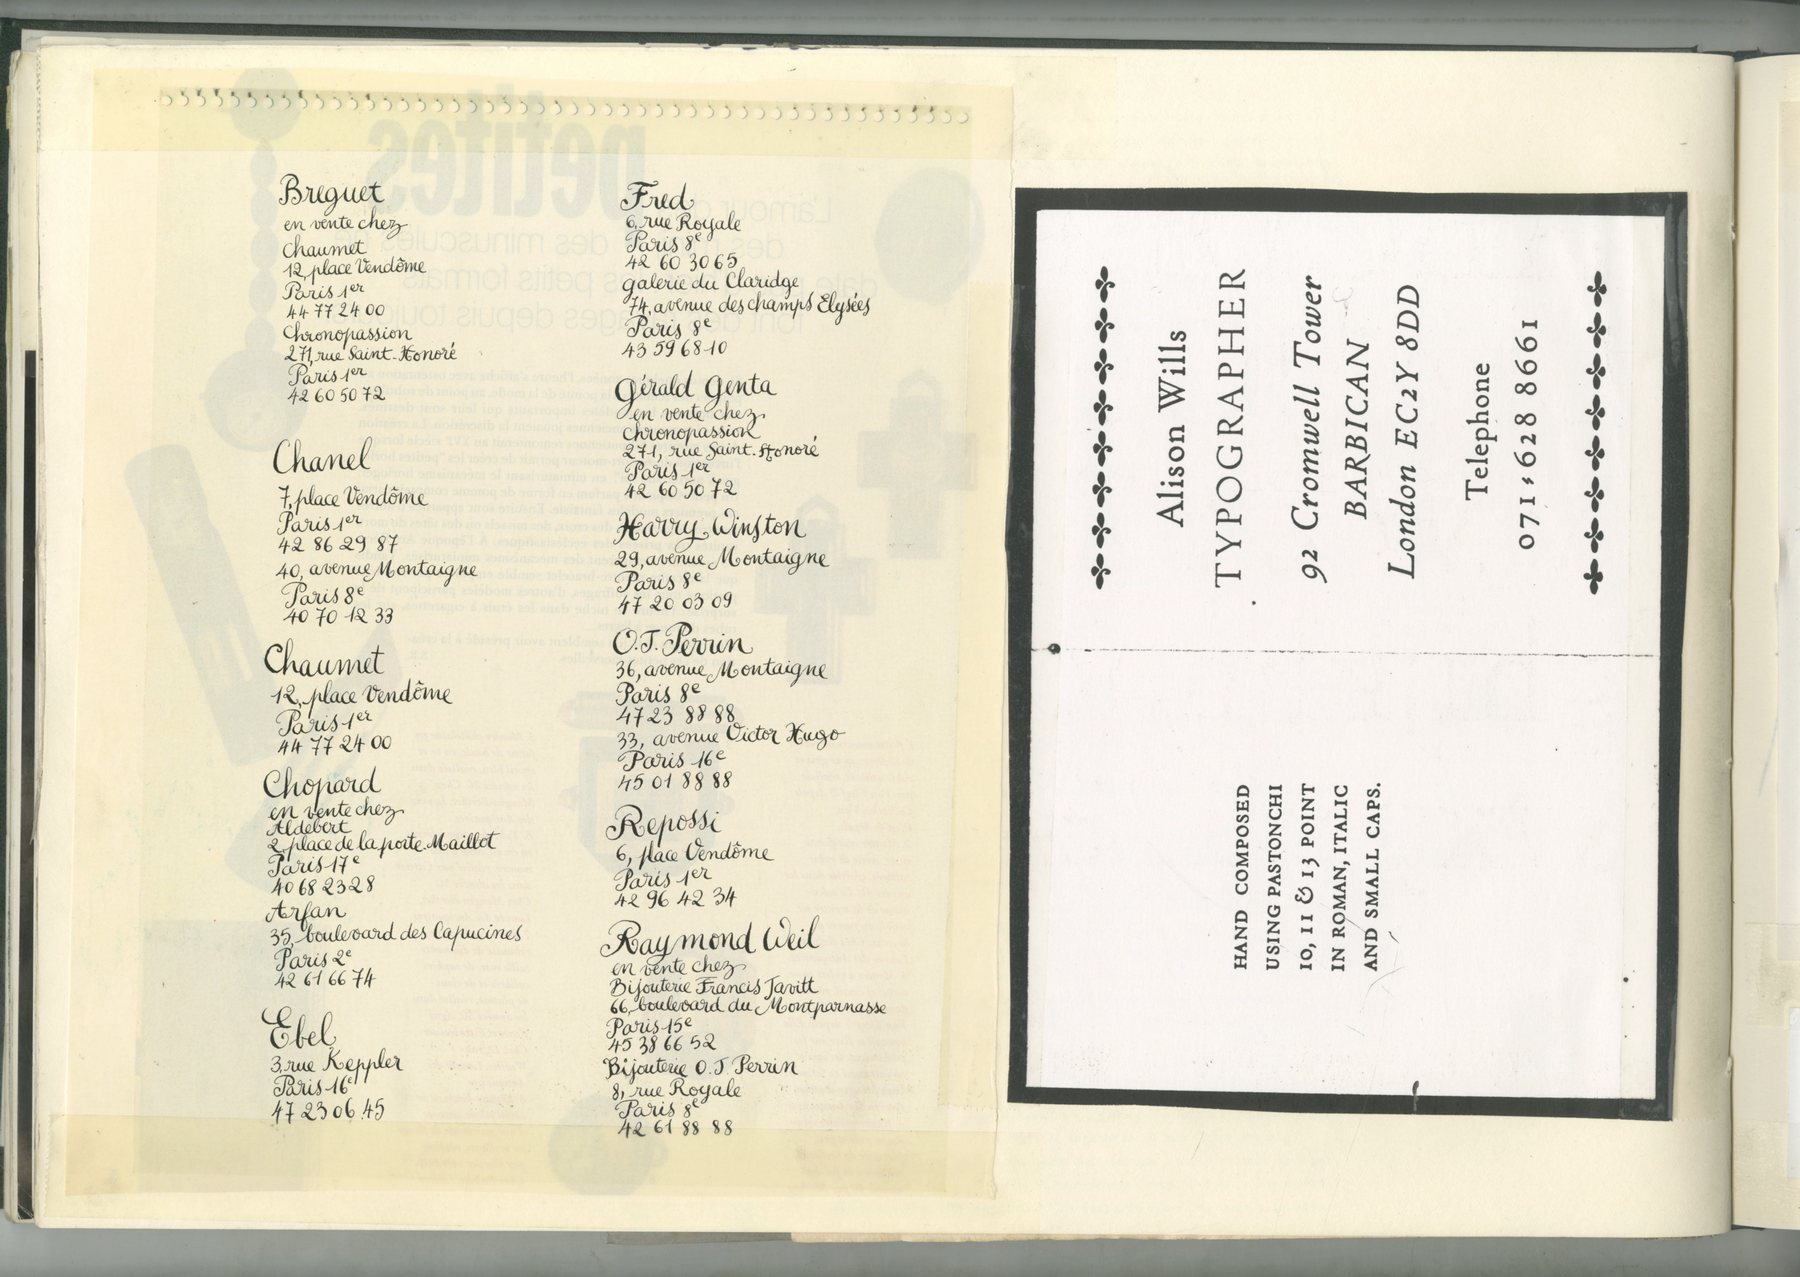 Breguet
en vente chez
Chaumet
12, place Vendôme
Paris 1er
44 77 24 00
Chronopassion
271, rue Saint-Honoré
Paris 1er
42 60 50 72
Chanel
7, place Vendôme
Paris 1er
42 86 29 87
40, avenue Montaigne
Paris 8e
40 70 12 33
Chaumet
12, place Vendôme
Paris 1er
44 77 24 00
Chopard
en vente chez
Aldebert
2, place de la porte Maillot
Paris 17e
40 68 23 28
Arfan
35, boulevard des Capucines
Paris 2e
42 61 66 74
Ebel
3, rue Keppler
Paris 16e
47 23 06 45
Fred
6, rue Royale
Paris 8e
42 60 30 65
galerie du Claridge
74, avenue des champs Elysées
Paris 8e
43 59 68 10
Gérald Genta
en vente chez
chronopassion
271, rue Saint-Honoré
Paris 1er
42 60 50 72
Harry Winston
29, avenue Montaigne
Paris 8e
47 20 03 09
O.J. Perrin
36, avenue Montaigne
Paris 8e
47 23 88 88
33, avenue Victor Hugo
Paris 16e
45 01 88 88
Repossi
6, place Vendôme
Paris 1er
42 96 42 34
Raymond Weil
en vente chez
Bijouterie Francis Javitt
66, boulevard du Montparnasse
Paris 15e
45 38 66 52
Bijouterie O.J Perrin
8, rue Royale
Paris 8e
42 61 88 88
Alison Wills
TYPOGRAPHER
92 Cromwell Tower
BARBICAN
London EC2Y 8DD
Telephone
071,628 8661
HAND COMPOSED
USING PASTONCHI
10, 11 & 13 POINT
IN ROMAN, ITALIC
AND SMALL CAPS.
petites